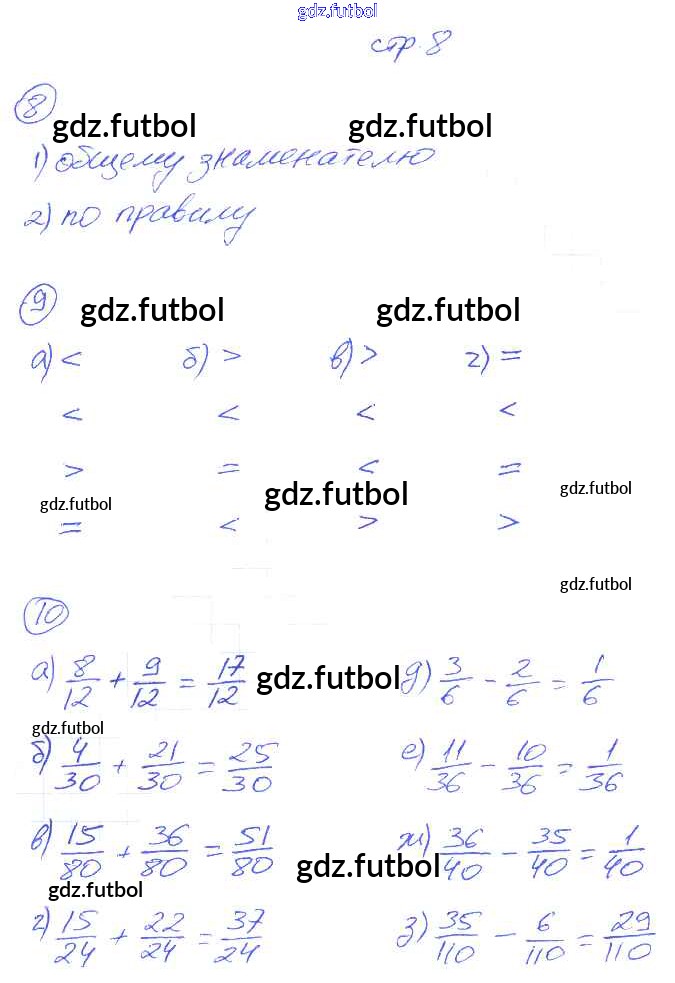 gdz.futbol
стр. 8
8
gdz.futbol gdz.futbol
1) общему знаменателю
2) по правилу
9
gdz.futbol gdz.futbol
а) < б) > в) > г) =
< < < <
> = < =
gdz.futbol gdz.futbol gdz.futbol
= < > >
gdz.futbol
10
а) 8/12 + 9/12 = 17/12 gdz.futbol д) 3/6 - 2/6 = 1/6
gdz.futbol
б) 4/30 + 21/30 = 25/30 е) 11/36 - 10/36 = 1/36
в) 15/80 + 36/80 = 51/80 gdz.futbol ж) 36/40 - 35/40 = 1/40
gdz.futbol
г) 15/24 + 22/24 = 37/24 з) 35/110 - 6/110 = 29/110